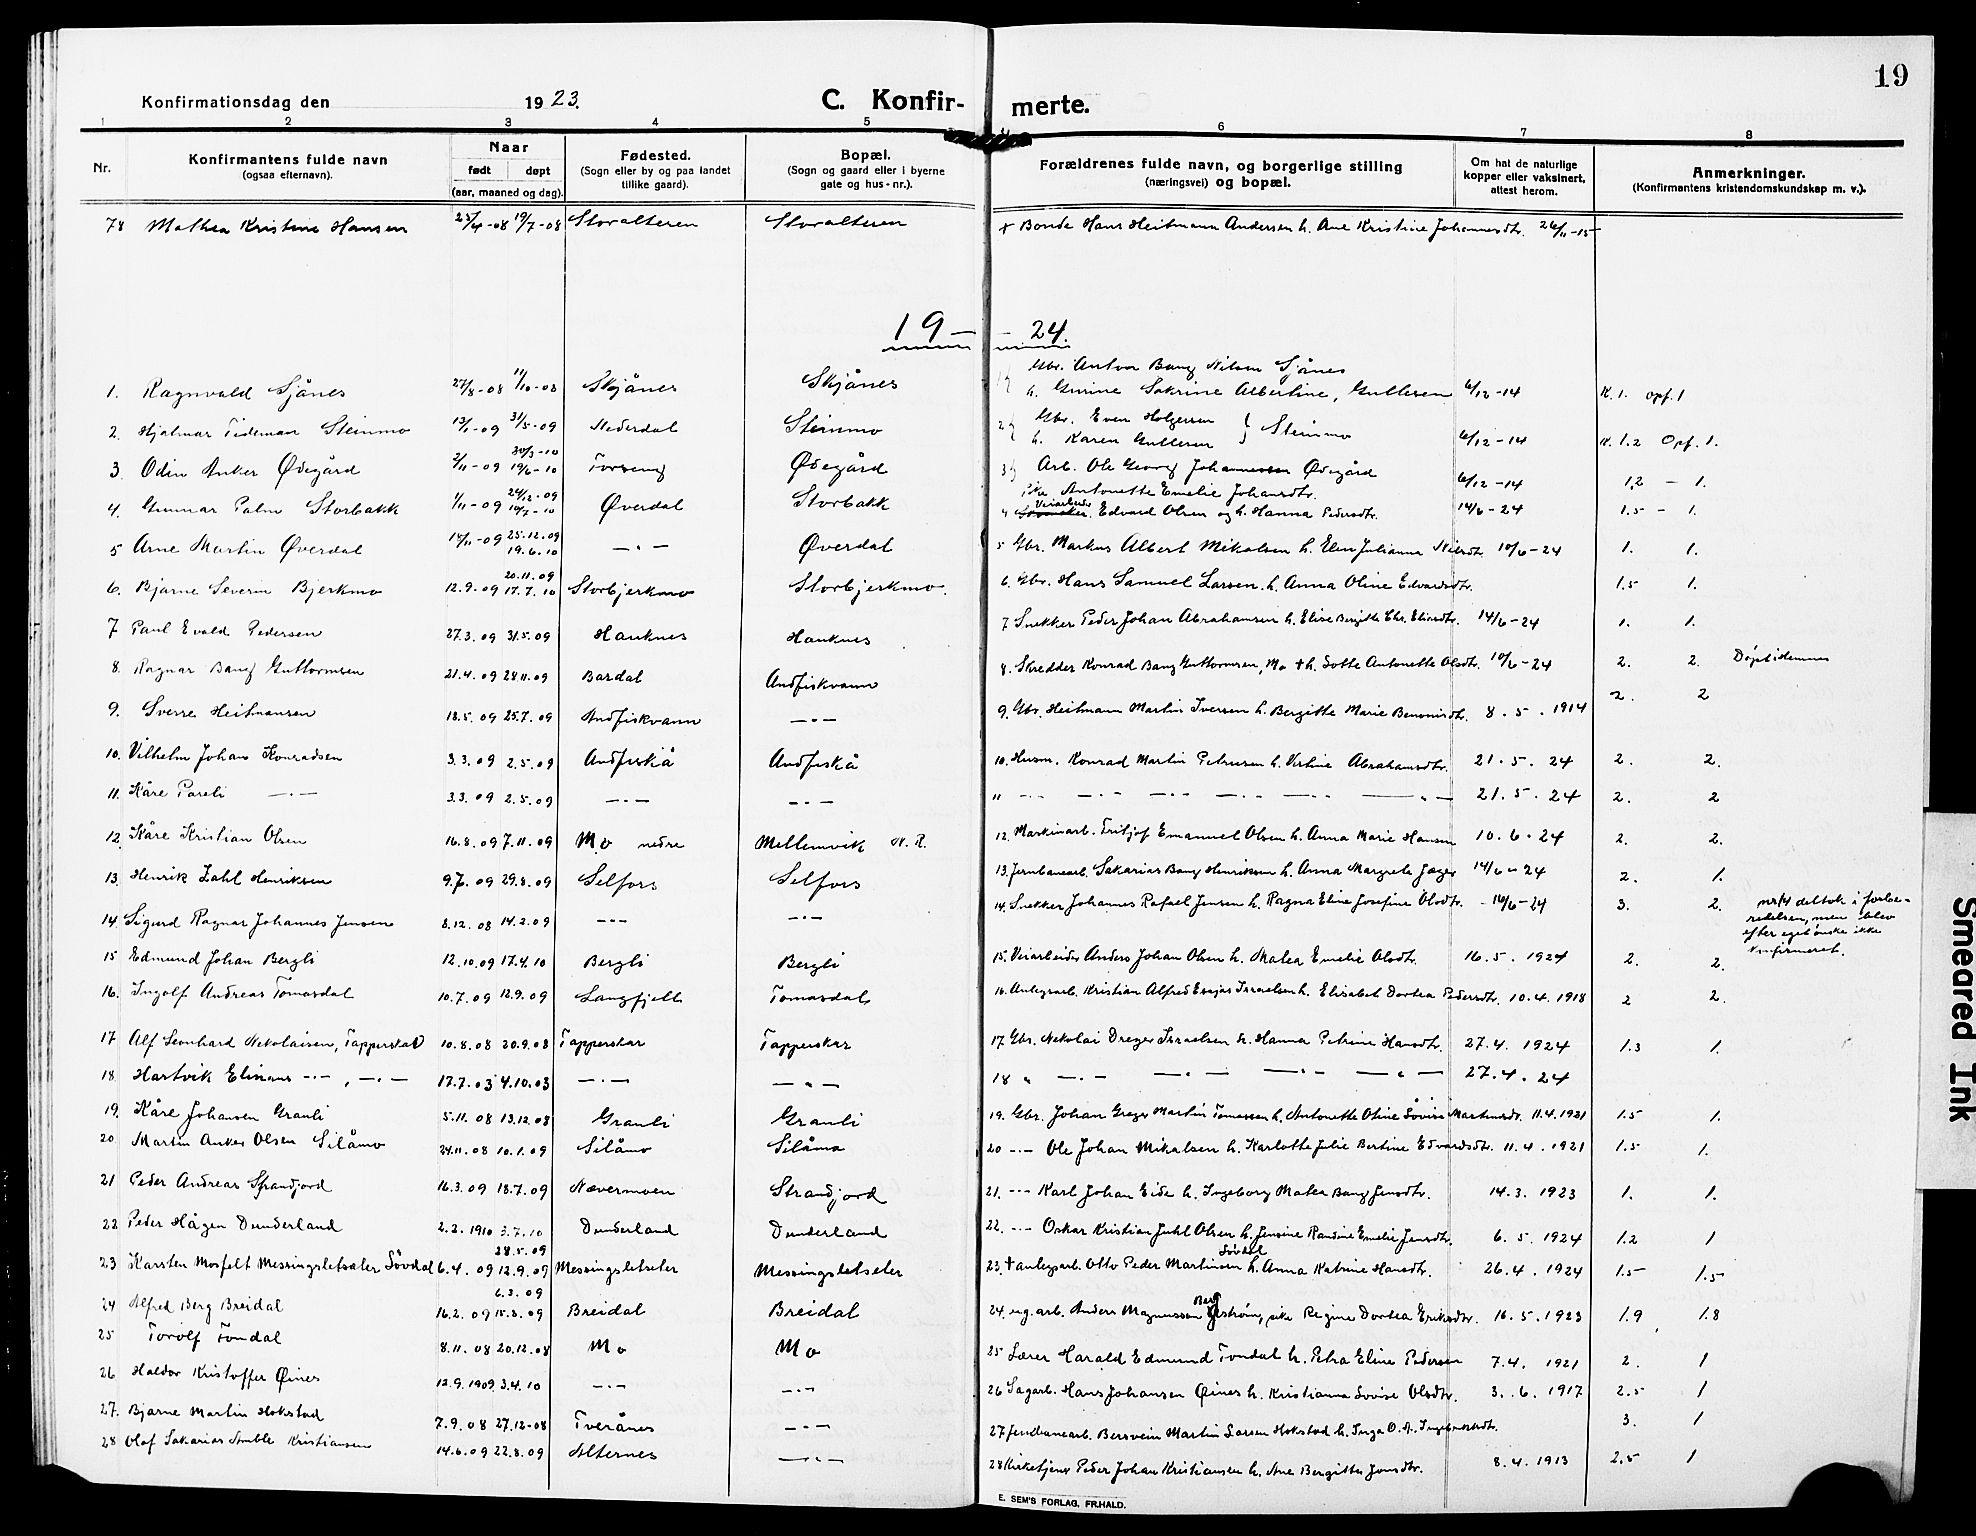 19
Konfirmationsdag den 1923.
C. Konfir- merte.
1 2 3 4 5 6 7 8
Nr.
Konfirmantens fulde navn
(ogsaa efternavn).
Naar
født døpt
(aar, maaned og dag).
Fødested.
(Sogn eller by og paa landet
tillike gaard).
Bopæl.
(Sogn og gaard eller i byerne
gate og hus-nr.).
Forældrenes fulde navn, og borgerlige stilling
(næringsvei) og bopæl.
Om hat de naturlige
kopper eller vaksinert,
attest herom.
Anmerkninger.
(Konfirmantens kristendomskundskap m. v.).
78 Mathea Kristine Hansen 25/4-08 19/7-08 Storalteren Storalteren + Bonde Hans Heitmann Andersen h. Ane Kristine Johannesdtr. 26/11-15
19– –24.
1. Ragnvald Sjånes 27/8-08 11/10-08 Skjånes Skjånes Gbr. Antoa Bang Nilsen Sjånes
h. Gunine Sakrine Albertine, Gullesen 6/12-14 K. 1. opf. 1
2. Hjalmar Tideman Steinmo 13/1-09 31/5-09 Nederdal Steinmo 2 Gbr. Even Holgersen
h. Karen Gullesen } Steinmo 6/12-14 K. 1.2 Opf. 1.
3. Odin Anker Ødegård 2/11-09 30/3-10 19/6-10 Torseng Ødegård 3 Arb. Ole Georg Johannessen Ødegård
Pike Antonette Emelie Johansdtr. 6/12-14 1,2 – 1.
4. Gunnar Palm Storbakk 1/11-09 24/12-09 10/7-10 Øverdal Storbakk 4 Veiarbeider Edvard Olsen og h. Hanna Pedersdtr. 14/6-24 1.5 – 1.
5 Arne Martin Øverdal 14/11-09 25.12.09 19.6.10 –"– Øverdal 5 Gbr. Markus Albert Mikalsen h. Elen Julianna Nilsdtr. 10/6-24 1. 1.
6. Bjarne Severin Bjerkmo 12.9.09 20.11.09 17.7.10 Storbjerkmo Storbjerkmo. 6. Gbr. Hans Samuel Larsen h. Anna Oline Edvardsdtr. 1.5 1.
7 Paul Evald Pedersen 27.3.09 31.5.09 Hauknes Hauknes 7 Snekker Peder Johan Abrahamsen h. Elise Bergitte Chr. Eliasdtr. 14/6-24 1. 1.
8. Ragnar Bang Guttormsen 21.4.09 28.11.09 Bardal Andfiskvann 8. Skredder Konrad Bang Guttormsen, Mo + h. Lotte Antonette Olsdtr. 10/6-24 2. 2. Døpt hjemme
9. Sverre Heitmansen 18.5.09 25.7.09 Andfiskvann –"– 9. Gbr. Heitmann Martin Iversen h. Bergitte Marie Benonisdtr. 8.5.1914 2 2
10. Vilhelm Johan Konradsen 3.3.09 2.5.09 Andfiskå Andfiskå 10. Husm. Konrad Martin Petersen h. Verline Abrahamsdtr. 21.5.24 2. 2.
11. Kåre Pareli –"– 3.3.09 2.5.09 –"– –"– " –"– –"– –"– –"– 21.5.24 2. 2
12. Kåre Kristian Olsen 16.8.09 7.11.09 Mo nedre Mellemvik N.R. 12. Maskinarb. Fritjof Emanuel Olsen h. Anna Marie Hansen 10.6.24 2. 2.
13. Henrik Zahl Henriksen 9.7.09 29.8.09 Selfors Selfors 13. Jernbanearb. Sakarias Bang Henriksen h. Anna Margrete Jæger 14/6-24 2. 1.
14. Sigurd Ragnar Johannes Jensen 8.12.08 14.2.09 –"– –"– 14. Snekker Johannes Rafael Jensen h. Ragna Eline Josefine Olsdtr. 14/6-24 3. 2. nr 14 deltok i forbe-
redelsen, men blev
efter eget ønske ikke
konfirmeret.
15 Edmund Johan Bergli 12.10.09 17.4.10 Bergli Bergli 15. Veiarbeider Anders Johan Olsen h. Malea Emelie Olsdtr. 16.5.1924 2. 2.
16. Ingolf Andreas Tomasdal 10.7.09 12.9.09 Langfjell Tomasdal 16. Anlegsarb. Kristian Alfred Esajas Israelsen h. Elisabet Dortea Pedersdtr. 10.4.1918 2 2.
17 Alf Leonhard Nikolaisen, Tapperskar 10.8.08 20.9.08 Tapperskar Tapperskar 17. Gbr. Nikolai Dreyer Israelsen h. Hanna Petrine Hansdtr. 27.4.1924 1.3 1.
18. Hartvik Elinaus –"–, –"– 17.7.03 4.10.03 –"– –"– 18 " –"– –"– –"– –"– 27.4.24
19. Kåre Johansen Granli 5.11.08 13.12.08 Granli Granli 19. Gbr. Johan Greger Martin Tomassen h. Antonette Oline Lovise Martinsdtr. 11.4.1921 1.5 1.
20. Martin Anker Olsen Silåmo 24.11.08 10.1.09 Silåmo Silåmo 20 –"– Ole Johan Mikalsen h. Karlotte Julie Bertine Edvardsdtr. 11.4.1921 1.5 1.
21 Peder Andreas Strandjord 16.3.09 18.7.09 Nævermoen Strandjord 21. –"– Karl Johan Eide h. Ingeborg Malea Bang Jensdtr. 14.3.1923 1. 1.
22 Peder Hågen Dunderland 2.2.1910 3.7.10 Dunderland Dunderland 22. –"– Oskar Kristian Juhl Olsen h. Jensine Randine Emelie Jensdtr. 6.5.1924 1.2 1
23 Karsten Mosfelt Messingsletseter Sövdal 6.4.09 28.5.09 12.9.09 Messingsletseter Messingsletseter 23. + anlegsarb. Otto Peder Martinsen Sövdal h. Anna Katrine Hansdtr. 26.4.1924 1.5 1.5
24 Alfred Berg Breidal 16.2.09 6.3.09 15.8.09 Breidal Breidal 24. ug. arb. Anders Magnussen Bergstrøm, pike Regine Dortea Eriksdtr. 16.5.1923 1.9 1.8
25 Torolf Tondal 8.11.08 20.12.08 Mo Mo 25 Lærer Harald Edmund Tondal h. Petra Eline Pedersen 7.4.1921 2. 1
26 Haldor Kristoffer Øines 12.9.1909 3.4.10 –"– –"– 26 Sagarb. Hans Johansen Øines h. Kristianna Lovise Olsdtr. 3.6.1917 2.5 1
27. Bjarne Martin Hokstad 7.9.08 27.12-08 Tverånes –"– 27 Jernbanearb. Bersvein Martin Larsen Hokstad h. Inga O. A. Ingebriktsdtr. 3. 1
28 Olaf Sakarias Amble Kristiansen 14.6.09 22.8.09 Alternes –"– 28 Kirketjener Peder Johan Kristiansen h. Ane Bergitte Jonsdtr. 8.4.1913 2.5 1
E. SEM'S FORLAG, FR.HALD.
Smeared Ink